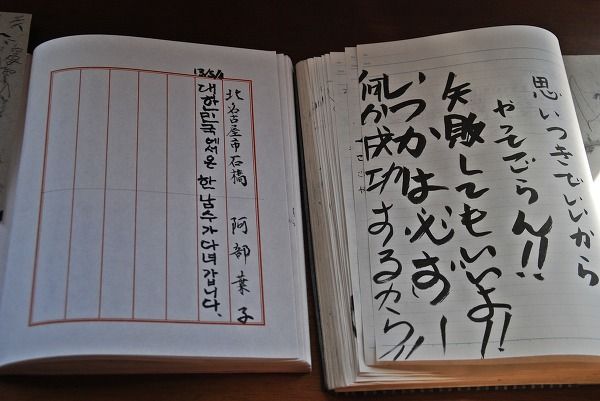 北名古屋市石橋 阿部葉子
대한민국에서온 한남수가다녀갑니다.
思いつきでいいから
やってごらん!!
失敗してもいいよ!!
いつかは必ず!
何か成功するから!!